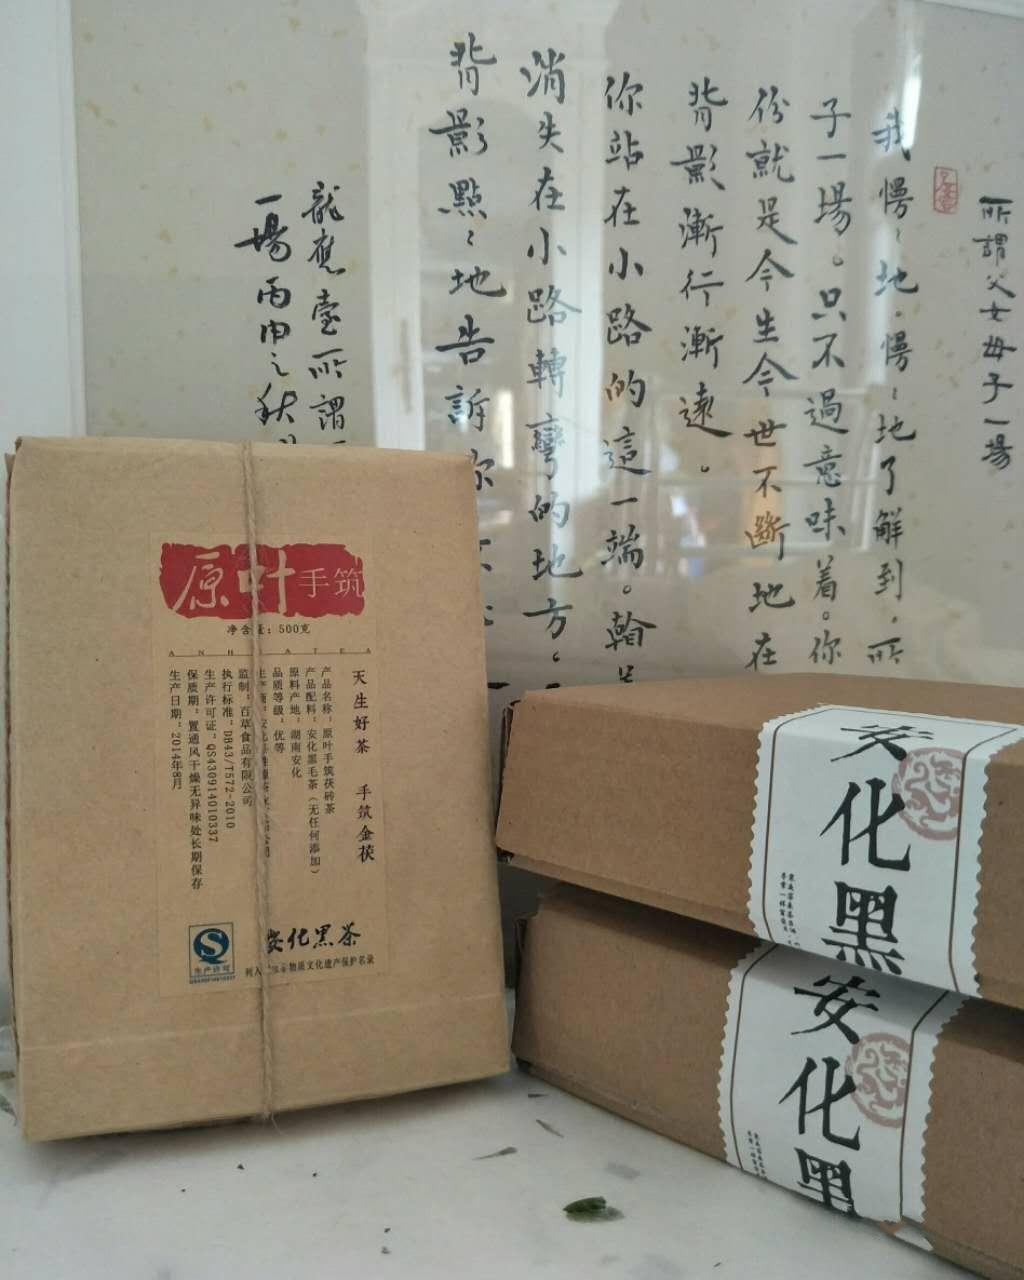 所謂父女母子一場
我慢慢地慢慢地了解到，所
子一場。只不過意味着。你
份就是今生今世不斷地在
背影漸行漸遠。
你站在小路的這一端。
消失在小路轉彎的地方。
背影默默地告訴你
龍應臺所謂
一場丙申之秋
原叶手筑
净含量：500克
天生好茶 手筑金茯
产品名称：原叶手筑茯砖茶
产品配料：安化黑毛茶（无任何添加）
原料产地：湖南安化
品质等级：优等
监制：百草食品有限公司
执行标准：DB43/T572-2010
生产许可证：QS430914010337
保质期：置通风干燥无异味处长期保存
生产日期：2014年8月
生产许可
安化黑茶
物质文化遗产保护名录
安化黑
安化黑